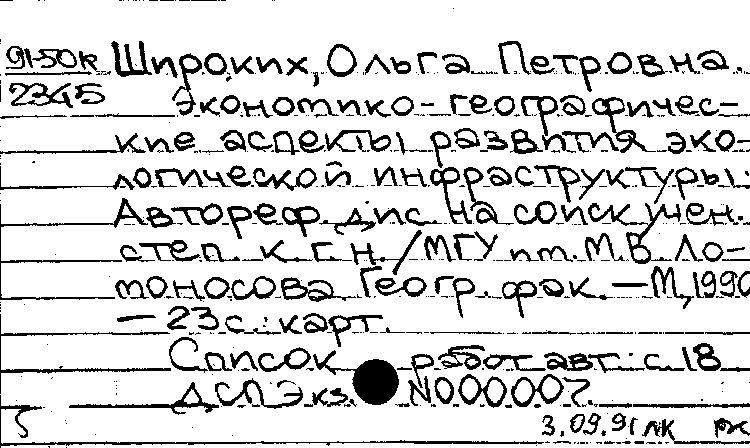 91-50к Широких, Ольга Петровна.
2345 Экономико-географичес-
кие аспекты развития эко-
логической инфраструктуры:
Автореф. дис. на соиск. учен.
степ. к. г. н. / МГУ им. М. В. Ло-
моносова. Геогр. фак. — М., 1990
— 23 с.: карт.
Список работ авт.: с. 18
ДСП Экз. N000007.
3.09.91 лк